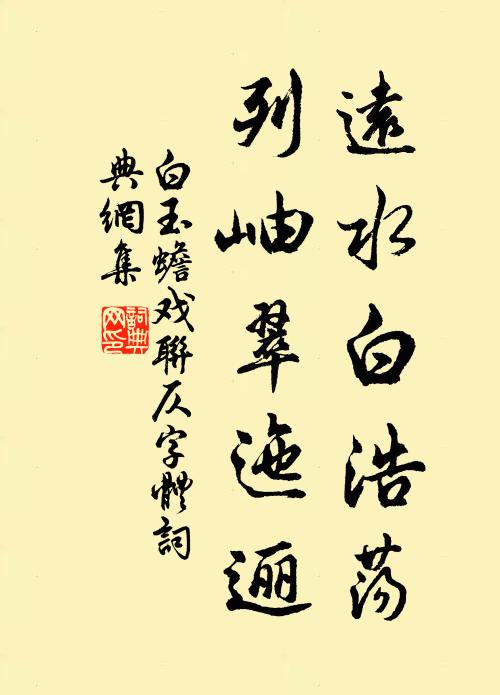 遠水白浩蕩
列岫翠迤逦
白玉蟾戏聯仄字體詞
典網集
詞典
网印